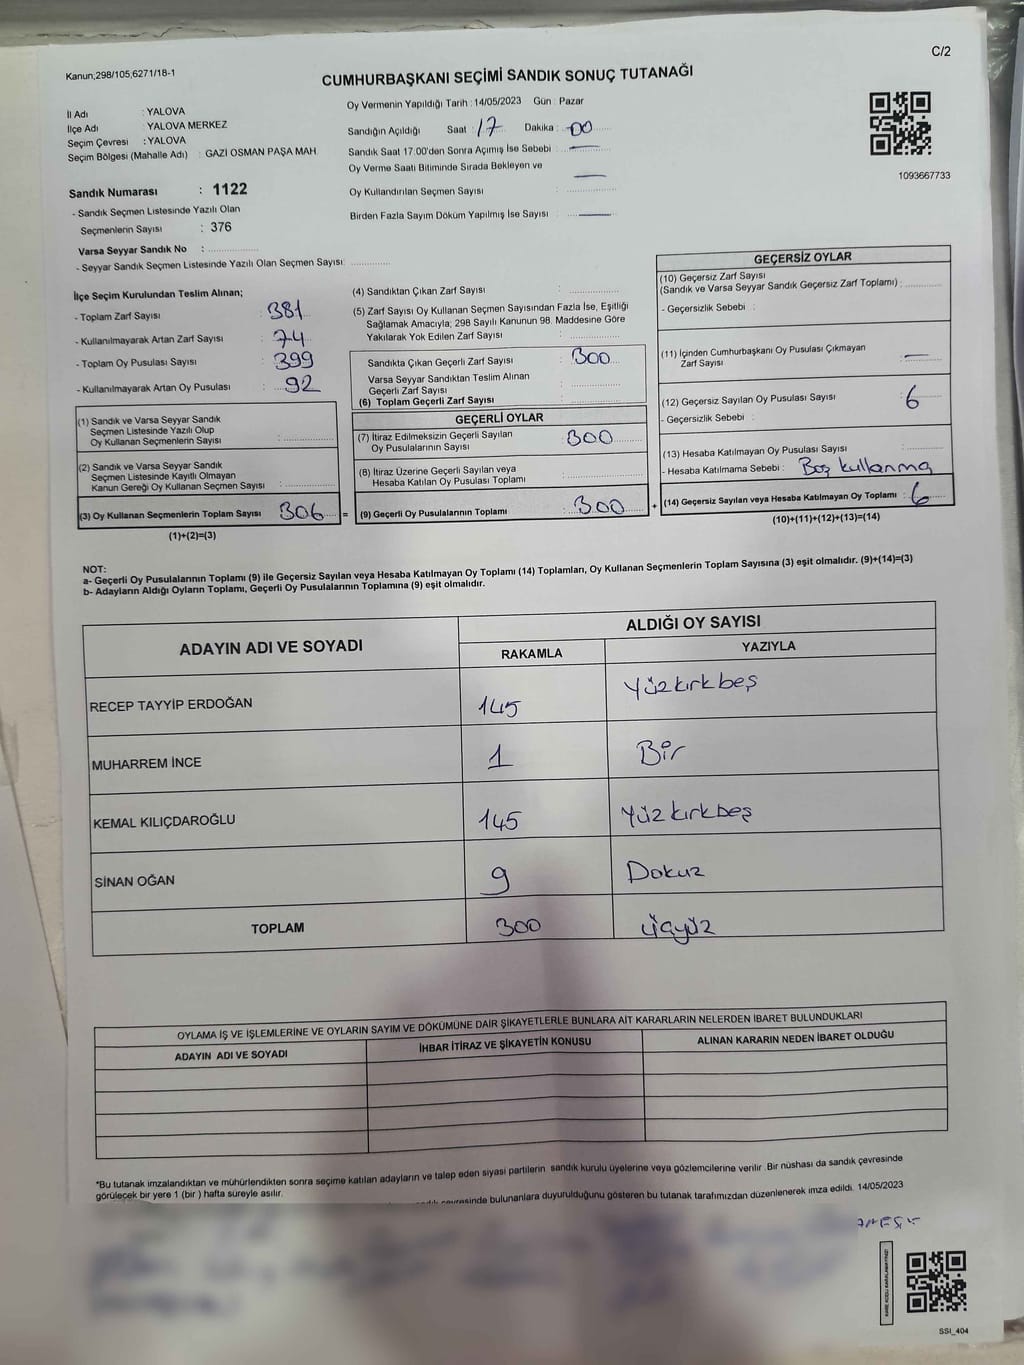 C/2
Kanun,298/105,6271/18-1
CUMHURBAŞKANI SEÇİMİ SANDIK SONUÇ TUTANAĞI
İl Adı : YALOVA
İlçe Adı : YALOVA MERKEZ
Seçim Çevresi : YALOVA
Seçim Bölgesi (Mahalle Adı) : GAZİ OSMAN PAŞA MAH.
Sandık Numarası : 1122
- Sandık Seçmen Listesinde Yazılı Olan
Seçmenlerin Sayısı : 376
Varsa Seyyar Sandık No :
- Seyyar Sandık Seçmen Listesinde Yazılı Olan Seçmen Sayısı:
Oy Vermenin Yapıldığı Tarih : 14/05/2023 Gün : Pazar
Sandığın Açıldığı Saat : 17 Dakika : 00
Sandık Saat 17:00'den Sonra Açımış İse Sebebi : —
Oy Verme Saati Bitiminde Sırada Bekleyen ve
Oy Kullandırılan Seçmen Sayısı : —
Birden Fazla Sayım Döküm Yapılmış İse Sayısı : —
1093667733
İlçe Seçim Kurulundan Teslim Alınan;
- Toplam Zarf Sayısı : 381
- Kullanılmayarak Artan Zarf Sayısı : 74
- Toplam Oy Pusulası Sayısı : 399
- Kullanılmayarak Artan Oy Pusulası : 92
(1) Sandık ve Varsa Seyyar Sandık
Seçmen Listesinde Yazılı Olup
Oy Kullanan Seçmenlerin Sayısı :
(2) Sandık ve Varsa Seyyar Sandık
Seçmen Listesinde Kayıtlı Olmayan
Kanun Gereği Oy Kullanan Seçmen Sayısı :
(3) Oy Kullanan Seçmenlerin Toplam Sayısı : 306 =
(1)+(2)=(3)
(4) Sandıktan Çıkan Zarf Sayısı :
(5) Zarf Sayısı Oy Kullanan Seçmen Sayısından Fazla İse, Eşitliği
Sağlamak Amacıyla; 298 Sayılı Kanunun 98. Maddesine Göre
Yakılarak Yok Edilen Zarf Sayısı :
Sandıkta Çıkan Geçerli Zarf Sayısı : 300
Varsa Seyyar Sandıktan Teslim Alınan
Geçerli Zarf Sayısı :
(6) Toplam Geçerli Zarf Sayısı :
GEÇERLİ OYLAR
(7) İtiraz Edilmeksizin Geçerli Sayılan
Oy Pusulalarının Sayısı : 300
(8) İtiraz Üzerine Geçerli Sayılan veya
Hesaba Katılan Oy Pusulası Toplamı :
(9) Geçerli Oy Pusulalarının Toplamı : 300 +
GEÇERSİZ OYLAR
(10) Geçersiz Zarf Sayısı
(Sandık ve Varsa Seyyar Sandık Geçersiz Zarf Toplamı) :
- Geçersizlik Sebebi :
(11) İçinden Cumhurbaşkanı Oy Pusulası Çıkmayan
Zarf Sayısı : —
(12) Geçersiz Sayılan Oy Pusulası Sayısı : 6
- Geçersizlik Sebebi :
(13) Hesaba Katılmayan Oy Pusulası Sayısı :
- Hesaba Katılmama Sebebi : Boş kullanma
(14) Geçersiz Sayılan veya Hesaba Katılmayan Oy Toplamı : 6
(10)+(11)+(12)+(13)=(14)
NOT:
a- Geçerli Oy Pusulalarının Toplamı (9) ile Geçersiz Sayılan veya Hesaba Katılmayan Oy Toplamı (14) Toplamları, Oy Kullanan Seçmenlerin Toplam Sayısına (3) eşit olmalıdır. (9)+(14)=(3)
b- Adayların Aldığı Oyların Toplamı, Geçerli Oy Pusulalarının Toplamına (9) eşit olmalıdır.
ADAYIN ADI VE SOYADI ALDIĞI OY SAYISI
RAKAMLA YAZIYLA
RECEP TAYYİP ERDOĞAN 145 Yüzkırkbeş
MUHARREM İNCE 1 Bir
KEMAL KILIÇDAROĞLU 145 Yüzkırkbeş
SİNAN OĞAN 9 Dokuz
TOPLAM 300 üçyüz
OYLAMA İŞ VE İŞLEMLERİNE VE OYLARIN SAYIM VE DÖKÜMÜNE DAİR ŞİKAYETLERLE BUNLARA AİT KARARLARIN NELERDEN İBARET BULUNDUKLARI
ADAYIN ADI VE SOYADI İHBAR İTİRAZ VE ŞİKAYETİN KONUSU ALINAN KARARIN NEDEN İBARET OLDUĞU
*Bu tutanak imzalandıktan ve mühürlendikten sonra seçime katılan adayların ve talep eden siyasi partilerin sandık kurulu üyelerine veya gözlemcilerine verilir. Bir nüshası da sandık çevresinde
görülecek bir yere 1 (bir) hafta süreyle asılır.
bulunanlara duyurulduğunu gösteren bu tutanak tarafımızdan düzenlenerek imza edildi. 14/05/2023
KARE KODU KARALAMAYINIZ!
SSI_404